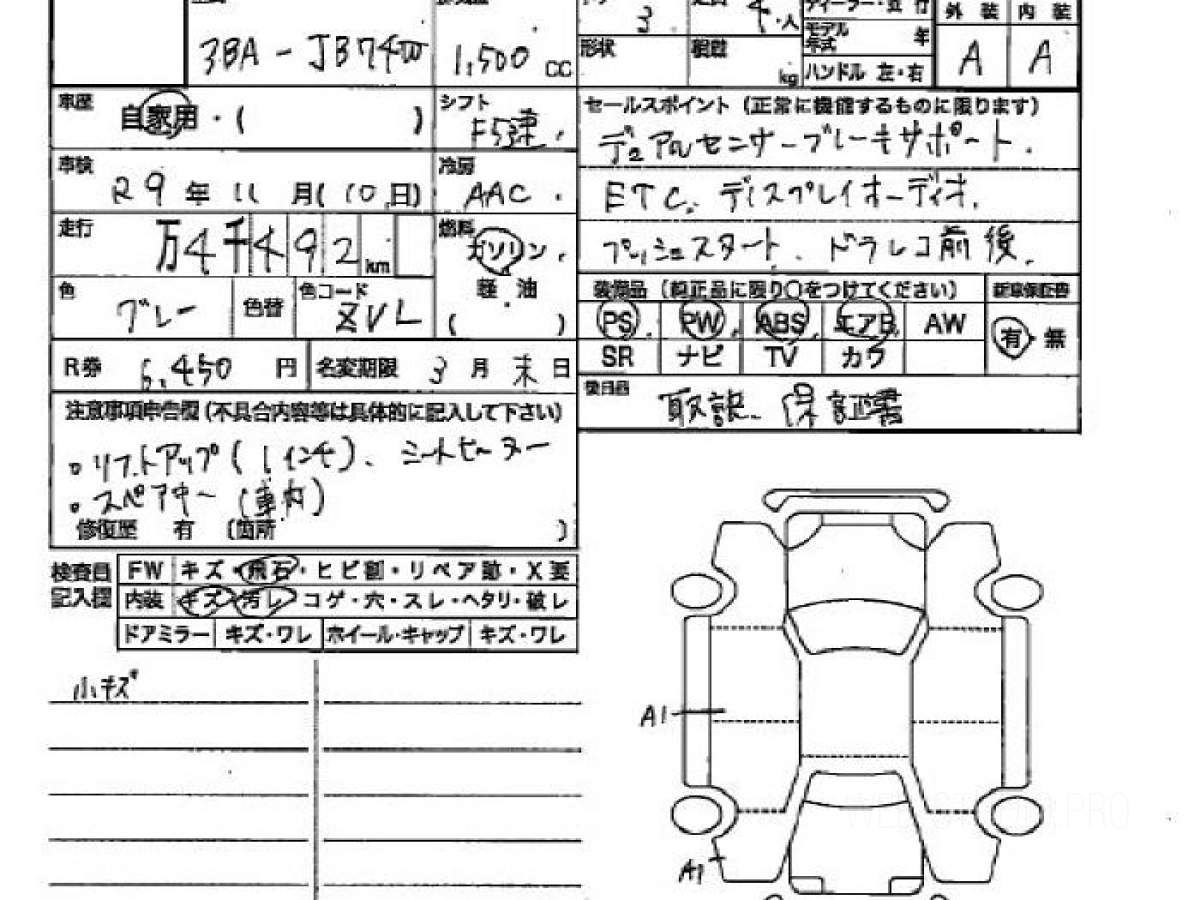 3BA - JB74W 1,500 CC
3 4 人 ディーラー・並 行
形状 kg
モデル年式 年
ハンドル 左・右
外 装 内 装
A A
車歴 自家用・( )
シフト F5速
セールスポイント (正常に機能するものに限ります)
デュアルセンサーブレーキサポート.
車検 R9 年 11 月(10 日)
冷房 AAC
ETC. ディスプレイオーディオ.
走行 万4千492 km
燃料 ガソリン・軽 油 ( )
プッシュスタート、ドラレコ前後.
色 グレー 色替 色コード ZVL
装備品 (純正品に限り○をつけてください) 新車保証書
PS PW ABS エアB AW 有・無
SR ナビ TV カワ
R券 6,450 円 名変期限 3 月 末 日
後日品 取説 保証書
注意事項申告欄(不具合内容等は具体的に記入して下さい)
。リフトアップ(1インチ)、シートヒーター
。スペアキー(車内)
修復歴 有 (箇所 )
検査員記入欄 FW キズ・飛石・ヒビ割・リペア跡・X要
内装 キズ・汚レ・コゲ・穴・スレ・ヘタリ・破レ
ドアミラー キズ・ワレ ホイール・キャップ キズ・ワレ
小キズ
A1
A1